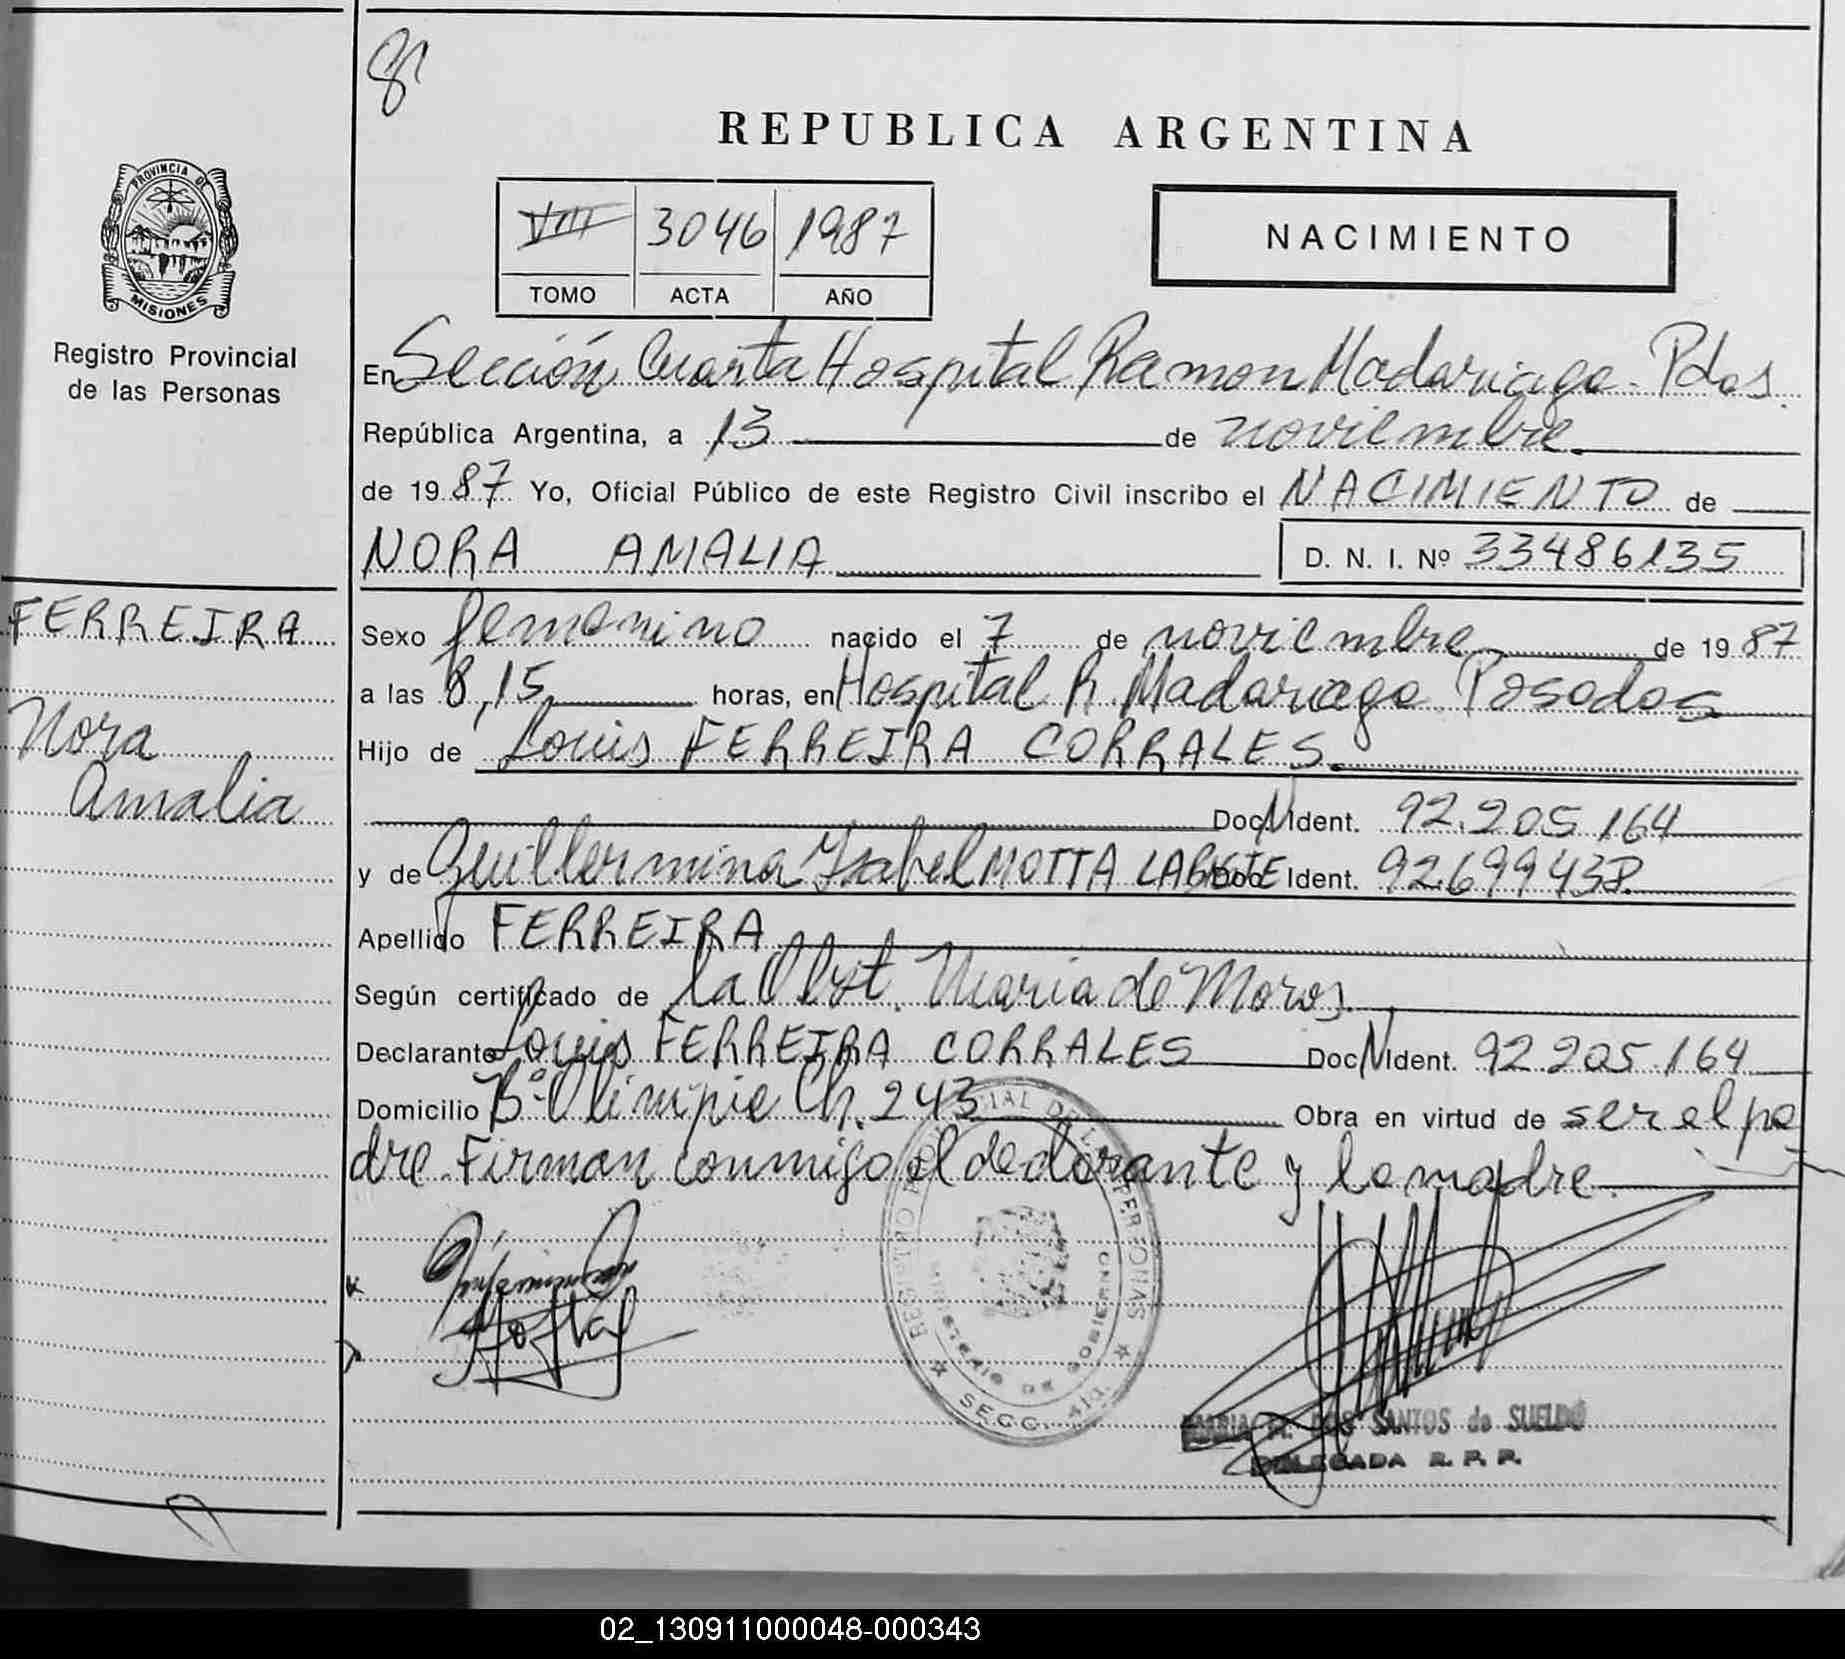 8
REPUBLICA ARGENTINA
PROVINCIA DE
MISIONES
Registro Provincial
de las Personas
VIII 3046 1987
TOMO ACTA AÑO
NACIMIENTO
En Sección Cuarta Hospital Ramon Madariaga. Pdas.
República Argentina, a 13 de noviembre
de 1987 Yo, Oficial Público de este Registro Civil inscribo el NACIMIENTO de
NORA AMALIA D. N. I. Nº 33486135
FERREIRA
Nora
Amalia
Sexo femenino nacido el 7 de noviembre de 1987
a las 8,15 horas, en Hospital R. Madariaga. Posadas
Hijo de Louis FERREIRA CORRALES.
Doc. N Ident. 92.205.164
y de Guillermina Ysabel MOTTA Doc. Ident. 92.699438
Apellido FERREIRA
Según certificado de la Obst. Maria de Moros.
Declarante Louis FERREIRA CORRALES Doc. N Ident. 92.205.164
Domicilio Bº Olimpie Ch. 243 Obra en virtud de ser el pa
dre. Firman conmigo el declarante y la madre.
REGISTRO PROVINCIAL DE LAS PERSONAS
MINISTERIO DE GOBIERNO
SECC. 4ta.
MARIA DOS SANTOS de SUELDO
DELEGADA R. P. P.
02_130911000048-000343